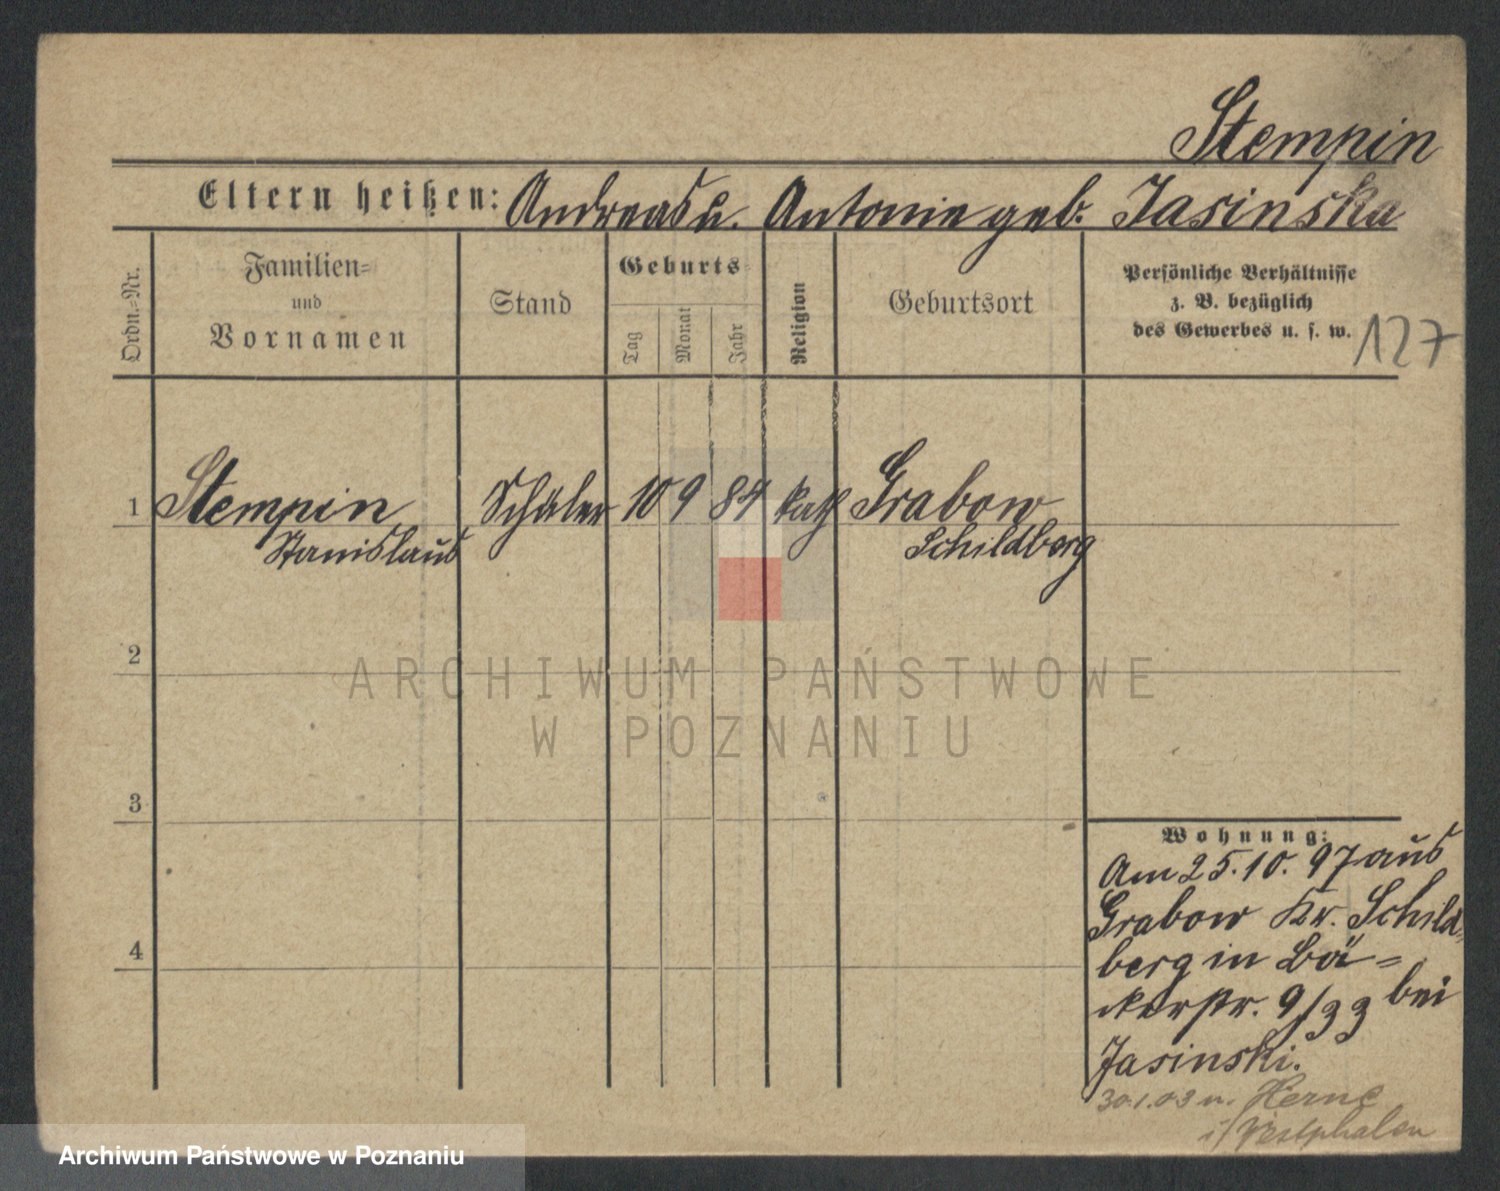 Stempin
Eltern heißen: Andreas u. Antonie geb. Jasinska
Ordn.-Nr.
Familien-
und
Vornamen
Stand
Geburts-
Tag
Monat
Jahr
Religion
Geburtsort
Persönliche Verhältnisse
z. B. bezüglich
des Gewerbes u. s. w.
127
1 Stempin Schüler 10 9 84 kath Grabow
Stanislaus Schildberg
2
3
4
Wohnung:
Am 25.10.97 aus
Grabow Kr. Schild-
berg in Bä-
ckerstr. 9/33 bei
Jasinski.
30.1.03 n. Herne
i/Westphalen
ARCHIWUM PAŃSTWOWE
W POZNANIU
Archiwum Państwowe w Poznaniu